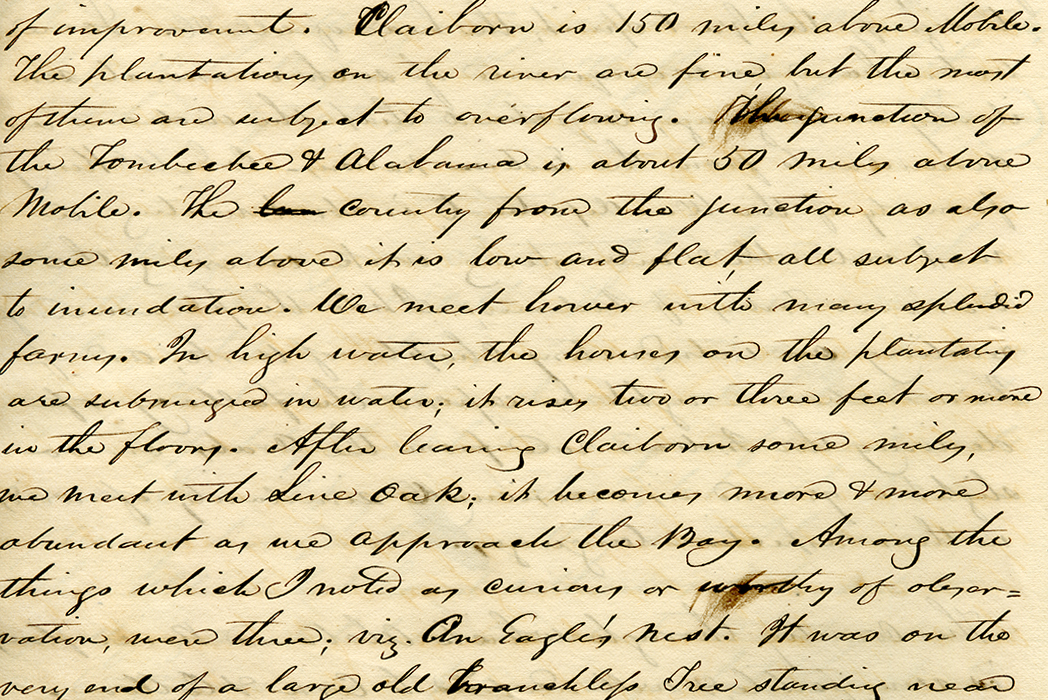 of improvement. Claiborn is 150 miles above Mobile.
The plantations on the river are fine but the most
of them are subject to overflowing. The junction of
the Tombecbee & Alabama is about 50 miles above
Mobile. The country from the junction as also
some miles above it is low and flat, all subject
to inundation. We meet hower with many splendid
farms. In high water, the houses on the plantatins
are submerged in water; it rises two or three feet or more
in the floors. After leaving Claiborn some miles,
we meet with Live Oak; it becomes more & more
abundant as we approach the Bay. Among the
things which I noted as curious or worthy of obser=
vation, were three; viz. An Eagle's nest. It was on the
very end of a large old branchless Tree standing near